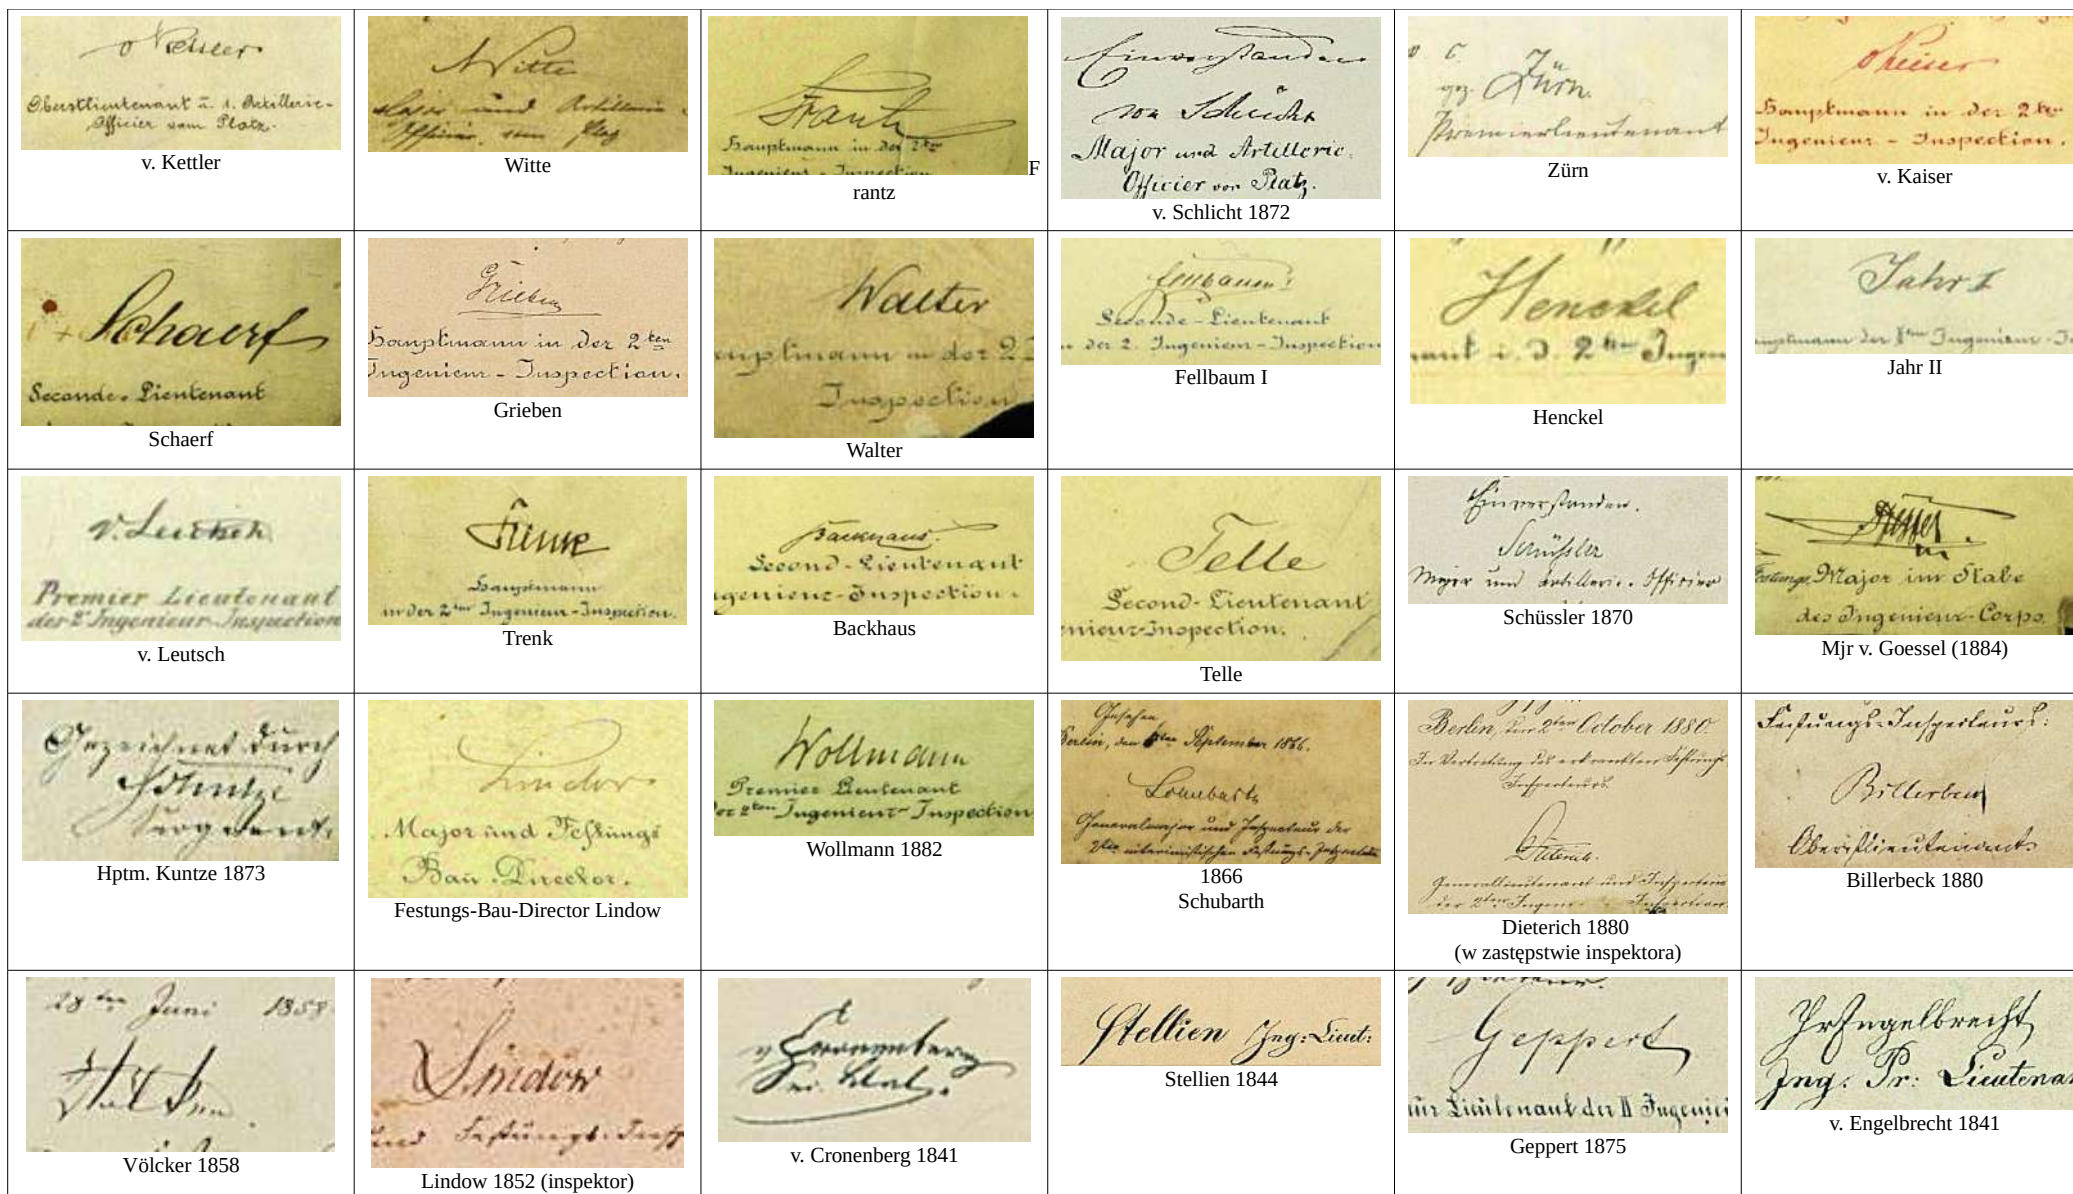 v Kettler
Oberstlieutenant u. 1. Artillerie-
Officier vom Platz.
v. Kettler
Witte
Major und Artillerie
Officier vom Platz
Witte
Frantz
Hauptmann in der 2ten
Ingenieur - Inspection
F
rantz
Einverstanden
von Schlicht
Major und Artillerie.
Officier von Platz.
v. Schlicht 1872
gez. Zürn.
Premierlieutenant
Zürn
v Kaiser
Hauptmann in der 2ten
Ingenieur - Inspection.
v. Kaiser
Schaerf
Seconde-Lieutenant
Schaerf
Grieben
Hauptmann in der 2ten
Ingenieur - Inspection.
Grieben
Walter
uptmann in der 2
Inspection
Walter
Fellbaum I
Seconde-Lieutenant
n der 2. Ingenieur-Inspection
Fellbaum I
Henckel
nant i. d. 2ten Ingen
Henckel
Jahr I
uptmann der Iten Ingenieur-I
Jahr II
v. Leutsch
Premier Lieutenant
der 2t Ingenieur-Inspection
v. Leutsch
Trenk
Hauptmann
in der 2ten Ingenieur-Inspection.
Trenk
Backhaus.
Second-Lieutenant
genieur-Inspection.
Backhaus
Telle
Second-Lieutenant
nieur-Inspection.
Telle
Einverstanden.
Schüssler
Major und Artillerie. Officier
Schüssler 1870
Goessel
Festungs Major im Stabe
des Ingenieur-Corps.
Mjr v. Goessel (1884)
Gezeichnet durch
Kuntze
Sergeant.
Hptm. Kuntze 1873
Lindow
Major und Festungs
Bau-Director.
Festungs-Bau-Director Lindow
Wollmann
Premier Lieutenant
der 2ten Ingenieur-Inspection
Wollmann 1882
Gesehen
Berlin, den September 1866.
Schubarth
Generalmajor und Inspecteur der
2ten interimistischen Festungs-Inspection
1866
Schubarth
Berlin, den 2ten October 1880.
In Vertretung des erkrankten Festungs
Inspecteurs.
Dieterich.
Generallieutenant und Inspecteur
der 2ten Ingen. Inspection.
Dieterich 1880
(w zastępstwie inspektora)
Festungs-Inspecteurs:
Billerbeck
Oberstlieutenant.
Billerbeck 1880
28ten Juni 1858
Völcker
Völcker 1858
Lindow
und Festungs-Insp
Lindow 1852 (inspektor)
v Cronenberg
v. Cronenberg 1841
Stellien Ing: Lieut:
Stellien 1844
Geppert
Lieutenant der II Ingenieu
Geppert 1875
Engelbrecht
Ing. Pr: Lieutenan
v. Engelbrecht 1841